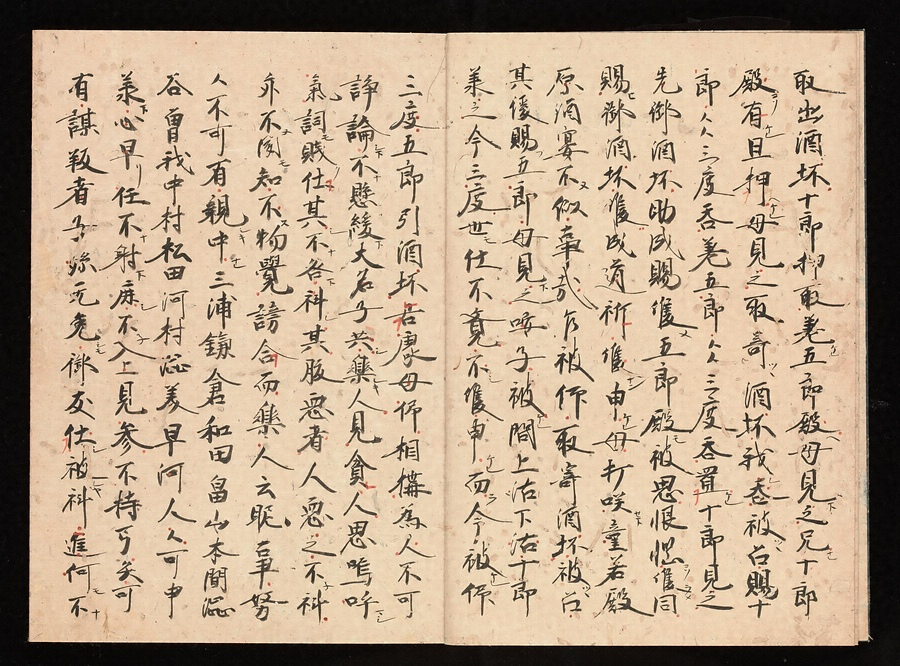 取出酒坏十郎押取巻五郎殿母見之兄十郎
殿有且押母見之取寄酒坏我呑被召賜十
郎々々三度呑巻五郎々々三度呑置十郎見之
先御酒坏助成賜隻五郎殿被思恨怨隻同
賜御酒坏隻成道祈隻申母打咲童若殿
原酒宴不似事哉乍被仰取寄酒坏被召
其後賜五郎母見之喚子被問上沽下沽十郎
義之今三度世仕不覚亦隻申而今被仰
三度五郎引酒坏召康母仰相構為人不可
諍論不懸綾大名子共樂人見貪人思嗚呼
氣詞賤仕其不咎科其腹惡者人惡之不科
亦不図知不物覺謗合而樂人云眤事努
人不可有親中三浦鎌倉和田畠山本間澁
谷曽我中村松田河村澁美早河人々可申
義心早任不射麻不入上見参不持弓矢可
有謀叛者子孫元免御友仕被科進何不